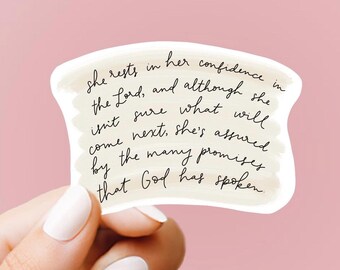 she rests in her confidence in
the Lord, and although she
isn't sure what will
come next, she's assured
by the many promises
that God has spoken